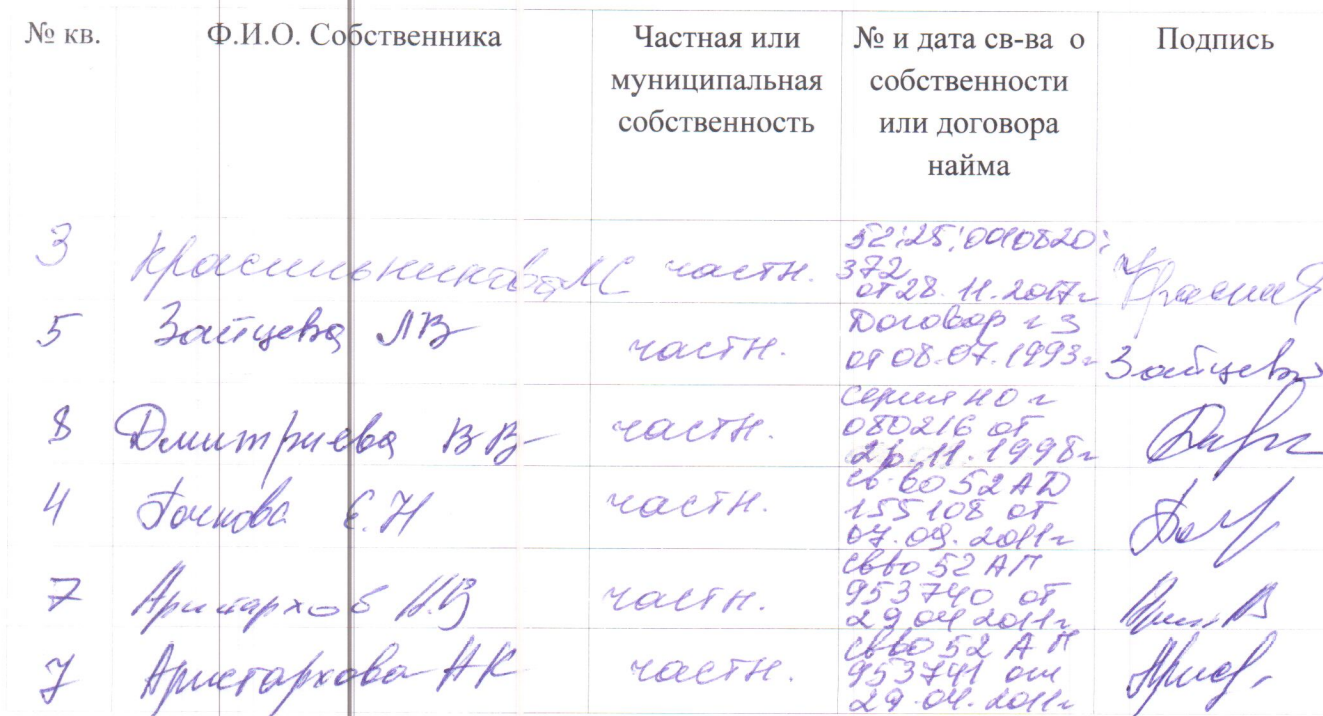 № кв. Ф.И.О. Собственника Частная или муниципальная собственность № и дата св-ва о собственности или договора найма Подпись
3 Красильникова МС частн. 52:25:0010620:
372
от 28.11.2017г
5 Зайцева ЛВ частн. Договор г 3
от 08.07.1993г Зайцева
8 Дмитриева ВВ частн. серия НО г
080216 от
26.11.1998г
4 Е.Н частн. св-во 52 АД
155108 от
07.09.2011г
7 Аристархов Н.В частн. св-во 52 АП
953740 от
29.04.2011г
7 Аристархова НК частн. св-во 52 АП
953741 от
29.04.2011г